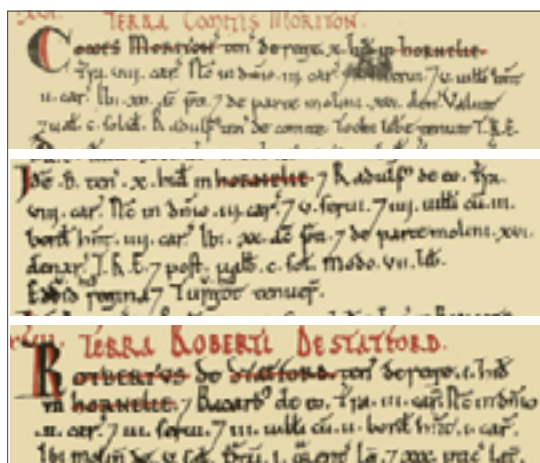 TERRA COMITIS MORITON.
Comes Moriton' ten' de rege .x. hid' in hornelie.
T'ra .viii. car'. Ne in d'nio .iii. car' serui. 7 v. uilli h'nt
ii. car'. Ibi .xx. ac p'ti. 7 de parte molini .xvi. den'. Valuit
7 ual't .c. solid'. Radulf' ten' de comite. Tochi libe' tenuit T.R.E.
Ide' .E. ten' .x. hid' in hornelie. 7 Radulf' de eo. T'ra
viii. car'. Ne in d'nio .iii. car'. 7 v. serui. 7 iiii. uilli cu' .iii.
bord' h'nt .iiii. car'. Ibi .xx. ac p'ti. 7 de parte molini .xvi.
denar'. T.R.E. 7 post ualb' .c. sol'. Modo .vii. lib'.
regina 7 tenuer'.
TERRA ROBERTI DE STATFORD.
Rotbertus de Statford ten' de rege .i. hid'
in hornelie. 7 Bucard' de eo. T'ra .iii. car'. Ne in d'nio
.ii. car'. 7 iii. serui. 7 iii. uilli cu' .ii. bord' h'nt .i. car'.
Ibi molin' de